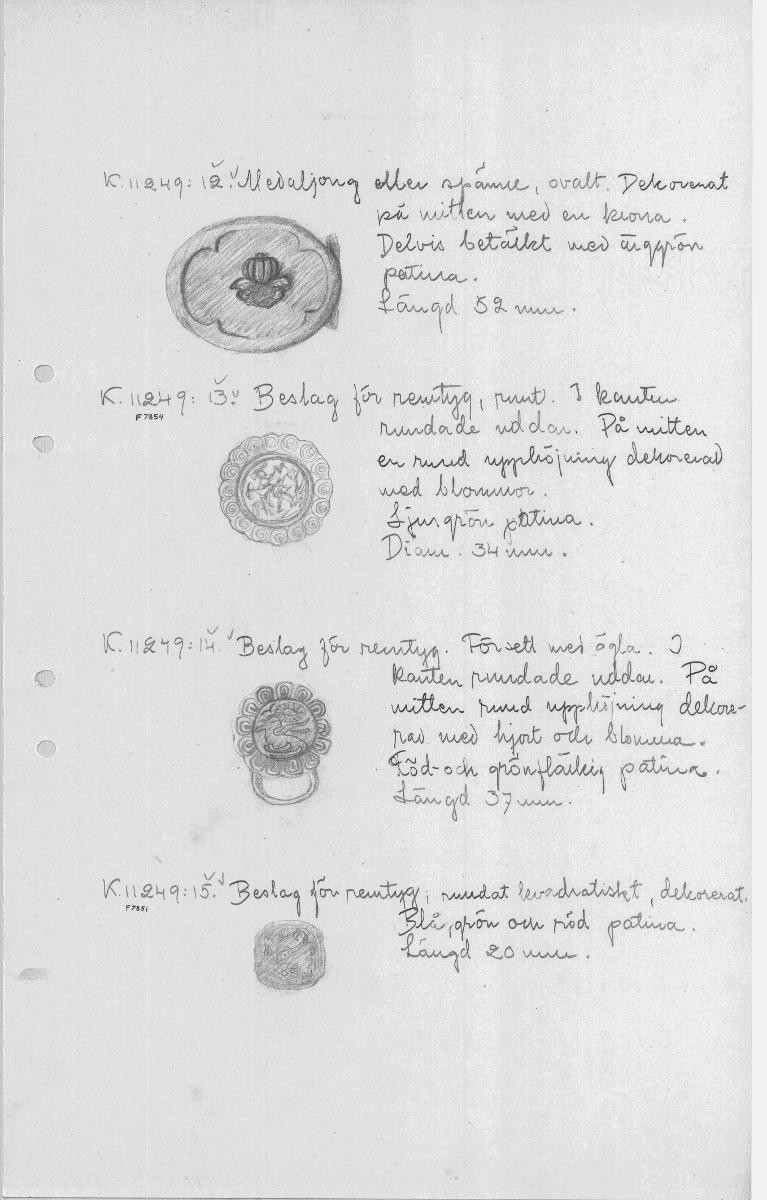 K. 11249: 12. Medaljong eller spänne, ovalt. Dekorerat
på mitten med en krona.
Delvis betäckt med ärggrön
patina.
Längd 52 mm.
K. 11249: 13. Beslag för remtyg, runt. I kanten
F 7854
rundade uddar. På mitten
en rund upphöjning dekorerad
med blommor.
Ljusgrön patina.
Diam. 34 mm.
K. 11249: 14. Beslag för remtyg. Försett med ögla. I
kanten rundade uddar. På
mitten rund upphöjning dekore-
rad med hjort och blomma.
Röd- och grönfläckig patina.
Längd 37 mm.
K. 11249: 15. Beslag för remtyg, rundat kvadratiskt, dekorerat.
F 7851
Blå, grön och röd patina.
Längd 20 mm.